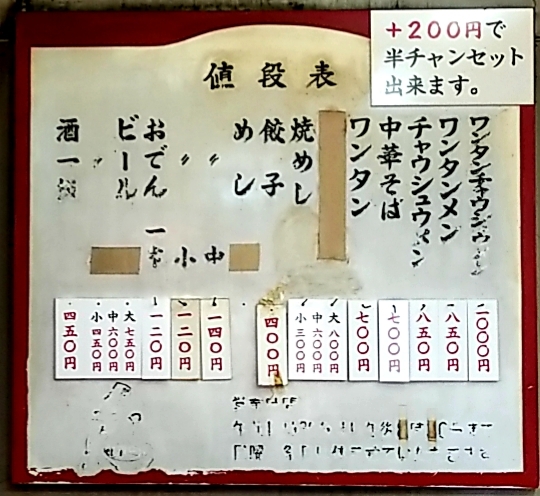 ＋200円で
半チャンセット
出来ます。
値段表
ワンタンチャウシュウメン
ワンタンメン
チャウシュウメン
中華そば
ワンタン
焼めし
餃子
めし
〃 中
〃 小
おでん 一
ビール
〃
酒一級
一〇〇〇円
八五〇円
八五〇円
七〇〇円
七〇〇円
大八〇〇円
中六〇〇円
小三〇〇円
四〇〇円
一四〇円
一二〇円
一二〇円
大七五〇円
中六〇〇円
小四五〇円
四五〇円